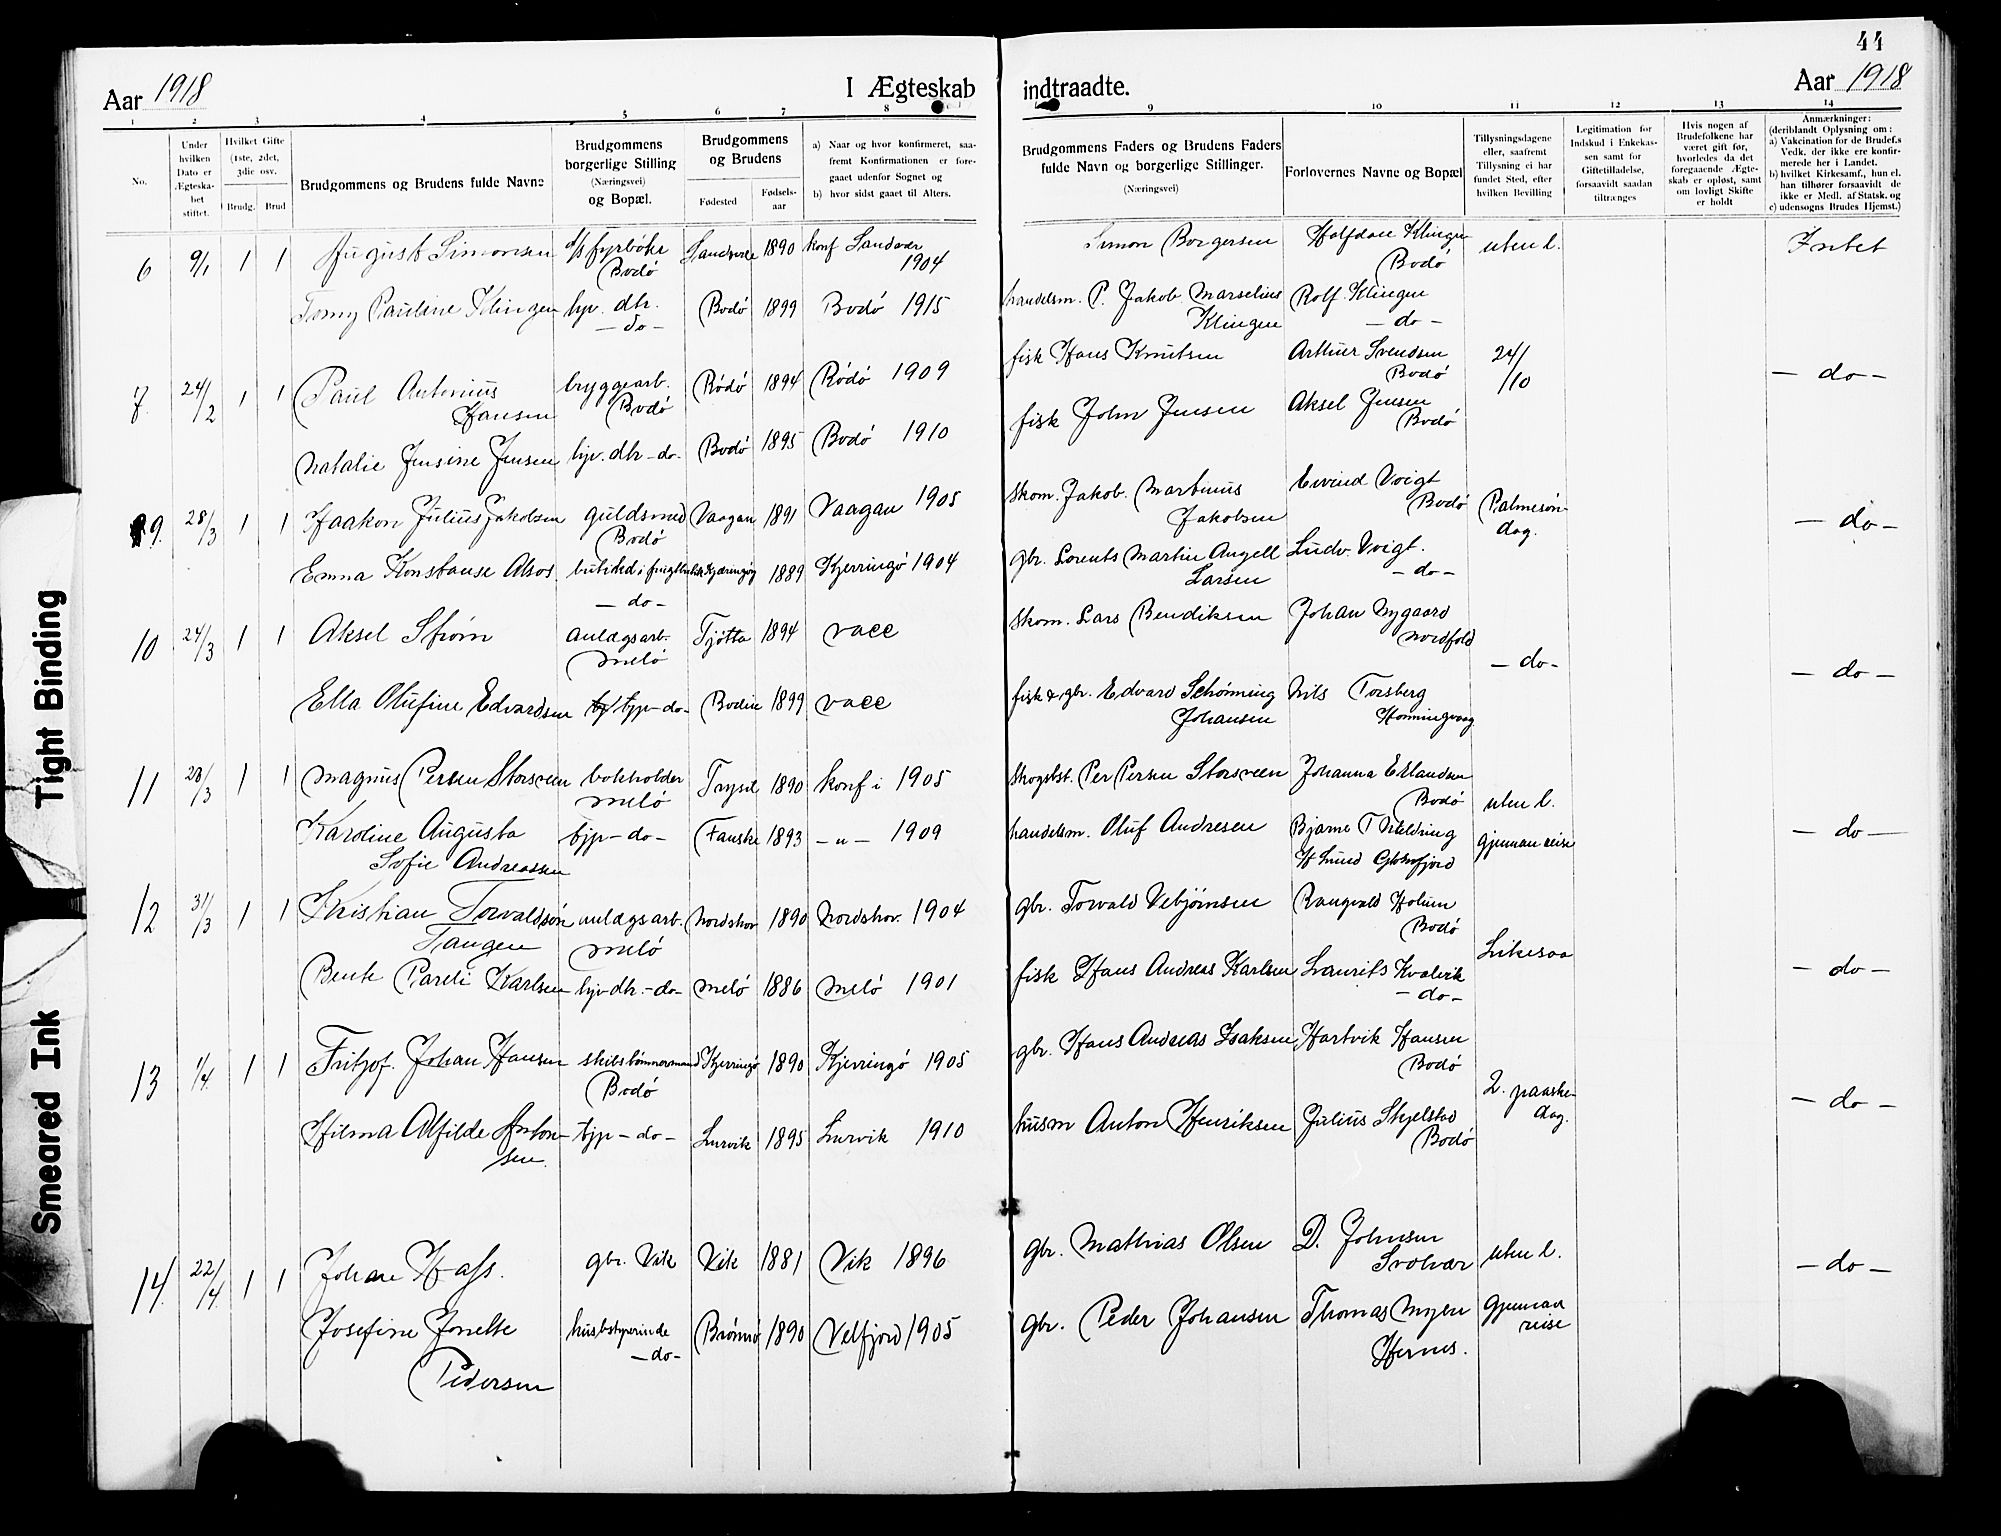 44
Aar 1918
I Ægteskab
indtraadte.
Aar 1918
1 2 3 4 5 6 7 8 9 10 11 12 13 14
No.
Under hvilken Dato er Ægteska-bet stiftet.
Hvilket Gifte (1ste, 2det, 3die osv.
Brudg. Brud
Brudgommens og Brudens fulde Navne
Brudgommens borgerlige Stilling (Næringsvei) og Bopæl.
Brudgommens og Brudens
Fødested
Fødsels-aar
a) Naar og hvor konfirmeret, saa-fremt Konfirmationen er fore-gaaet udenfor Sognet og
b) hvor sidst gaaet til Alters.
Brudgommens Faders og Brudens Faders fulde Navn og borgerlige Stillinger.
(Næringsvei)
Forlovernes Navne og Bopæl
Tillysningsdagene eller, saafremt Tillysning ei har fundet Sted, efter hvilken Bevilling
Legitimation for Indskud i Enkekas-sen samt for Giftetilladelse, forsaavidt saadan tiltrænges
Hvis nogen af Brudefolkene har været gift før, hvorledes da det foregaaende Ægte-skab er opløst, samt om lovligt Skifte er holdt
Anmærkninger:
(deriblandt Oplysning om:
a) Vakcination for de Brudef.s Vedk. der ikke ere konfir-merede her i Landet.
b) hvilket Kirkesamf., hun el. han tilhører forsaavidt de ikke er Medl. af Statsk. og
c) udensogns Brudes Hjemst.)
6 9/1 1 1 August Simonsen d/s fyrbøter Bodø 1890 konf Sandvær 1904 Simon Borgersen Halfdan Klingen Bodø uten l. Intet
Pauline Klingen hjv. dtr. - do - Bodø 1899 Bodø 1915 handelsm. P. Jakob Marselius Klingen Rolf Klingen - do -
7 24/2 1 1 Paul Antonius Hansen bryggearb. Bodø Rödö 1894 Rödö 1909 fisk Hans Knutsen Arthur Svendsen Bodø 24/ /10 - do -
Natalie Jensine Jensen hjv. dtr - do - Bodø 1895 Bodø 1910 fisk John Jensen Aksel Jensen Bodø
9. 28/3 1 1 Haakon Julius Jakobsen guldsmed Bodø Vaagan 1891 Vaagan 1905 skom. Jakob Martinus Jakobsen Eivind Voigt Bodø Palmesøn-dag. - do -
Emma Konstanse Alsos - do - 1889 Kjerringø 1904 gbr. Lorents Martin Angell Larsen Ludv. Voigt. - do -
10 24/3 1 1 Aksel Strøm anlægsarb. Melø Tjøtta 1894 vacc skom. Lars Bendiksen Johan Nygaard Nordfold - do - - do -
Ella Olufine Edvardsen tjp - do - Bodin 1899 vacc fisk & gbr. Edvard Schønning Johansen Nils Torsberg Honningvaag
11 28/3 1 1 Magnus Persen Storsveen bokholder Melø Trysil 1890 konf i 1905 Per Persen Storsveen Johanna Erlandsen Bodø uten l. - do -
Karoline Augusta Sofie Andreassen tjp - do - Fauske 1893 - " - 1909 handelsm. Oluf Andresen Bjarne T Glomfjord gjennemreise
12 31/3 1 1 Kristian Torvaldsøn Tangen anlægsarb. Melø Nordskov 1890 Nordskov. 1904 gbr. Torvald Vebjørnsen Rangvald Holum Bodø Likesaa - do -
Karlsen hjv dtr. - do - Melø 1886 Melø 1901 fisk Hans Andreas Karlsen Laurits Kvalvik - do -
13 1/4. 1 1 Fritjof. Johan Hansen skibstømmermand Bodø Kjerringø 1890 Kjerringø 1905 gbr. Hans Andreas Isaksen Hartvik Hansen Bodø 2. paaske-dag. - do -
Hilma Alfilde Anton-sen. tjp - do - Lurvik 1895 Lurvik 1910 husm Anton Henriksen Julius Skjelstad Bodø
14. 22/4. 1 1 Johan Hass. gbr. Vik Vik 1881 Vik 1896 gbr. Mathias Olsen D. Johnsen Svolvær uten l. - do -
Josefine Jonette Pedersen husbstyrerinde - do - Brønnø 1890 Velfjord 1905 gbr. Peder Johansen Thomas Myen Hernes. gjennem reise
Tight Binding
Smeared Ink